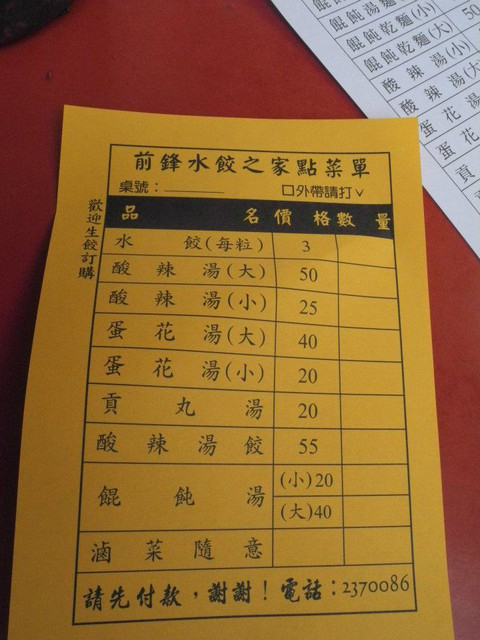 前鋒水餃之家點菜單
桌號：＿＿＿＿ 口外帶請打ˇ
歡迎生餃訂購
品 名 價 格 數 量
水 餃(每粒) 3
酸 辣 湯(大) 50
酸 辣 湯(小) 25
蛋 花 湯(大) 40
蛋 花 湯(小) 20
貢 丸 湯 20
酸 辣 湯 餃 55
餛 飩 湯 (小)20
(大)40
滷 菜 隨 意
請先付款，謝謝！電話：2370086
餛飩湯麵(
餛飩乾麵(小)
餛飩乾麵(大) 50
酸 辣 湯(小)
酸 辣 湯(大
蛋 花 湯
蛋 花
貢